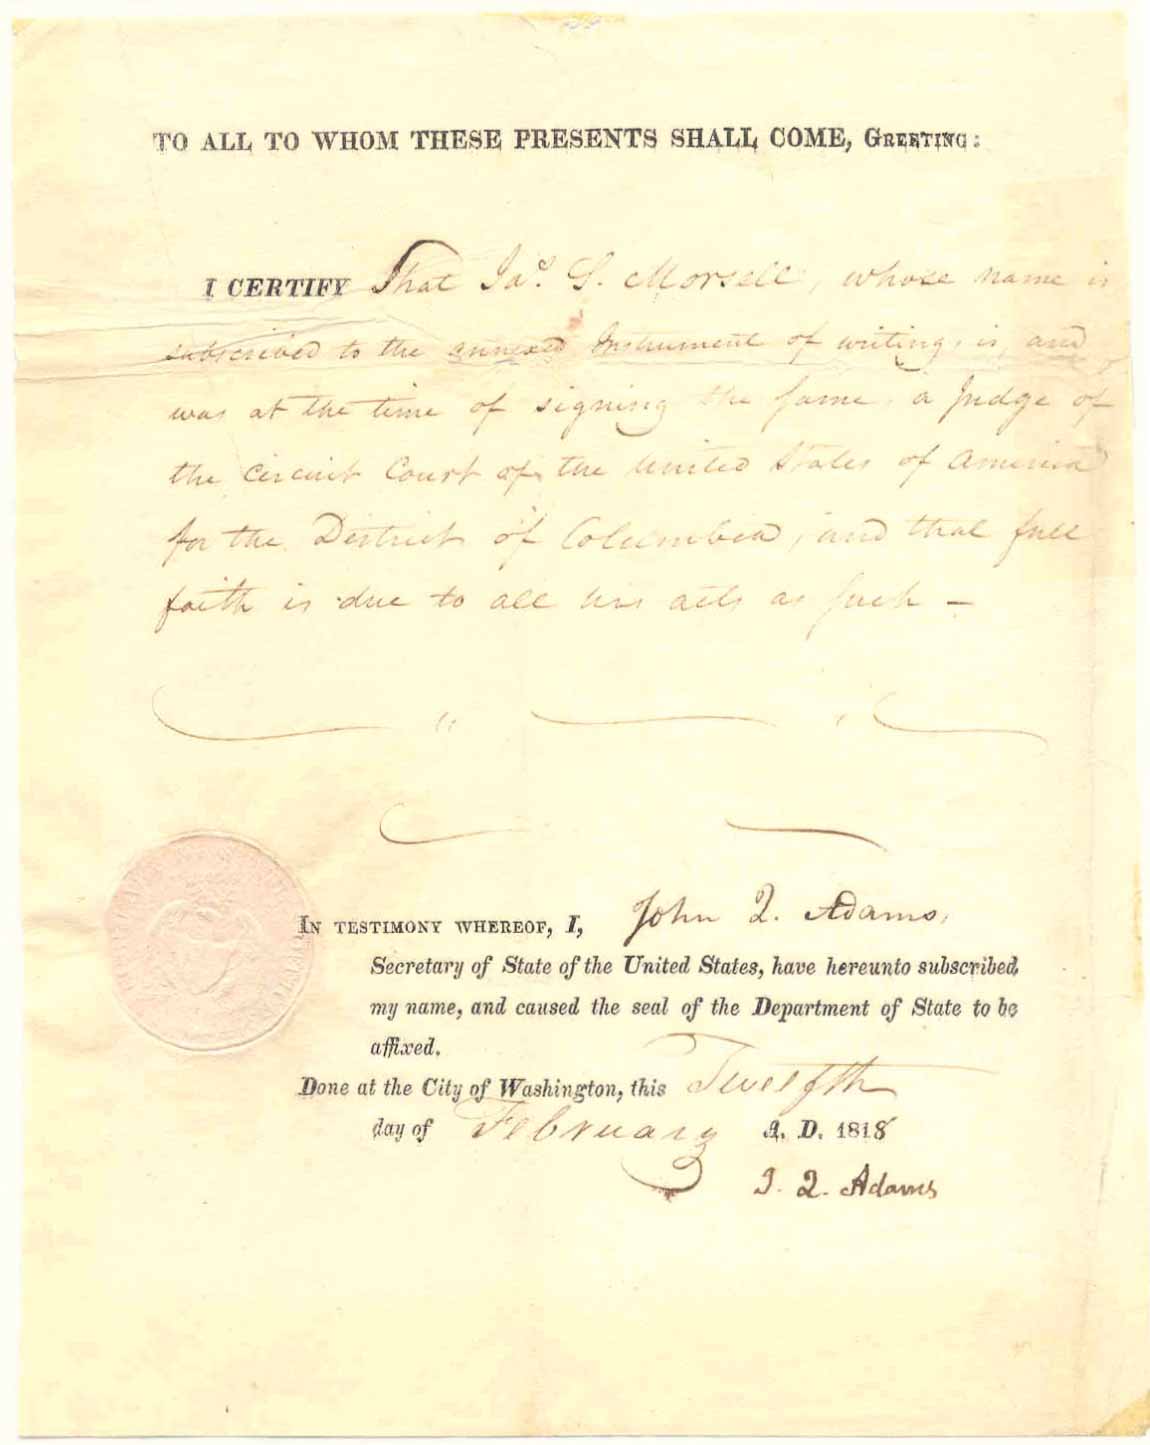 TO ALL TO WHOM THESE PRESENTS SHALL COME, GREETING:
I CERTIFY That Jas. S. Morsell, whose name is
subscribed to the annexed Instrument of writing, is, and
was at the time of signing the same, a Judge of
the Circuit Court of the United States of America
for the District of Columbia, and that full
faith is due to all his acts as such –
IN TESTIMONY WHEREOF, I, John Q. Adams,
Secretary of State of the United States, have hereunto subscribed
my name, and caused the seal of the Department of State to be
affixed.
Done at the City of Washington, this Twelfth
day of February A. D. 1818
J. Q. Adams